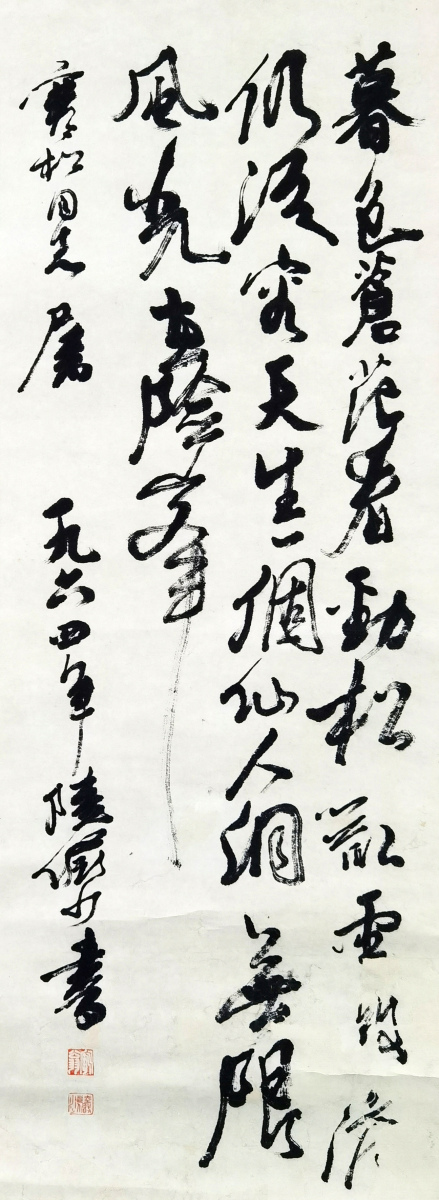 暮色蒼茫看勁松亂雲飛渡
仍從容天生一個仙人洞無限
風光在險峯
松同志屬 一九六四年陸儼少書